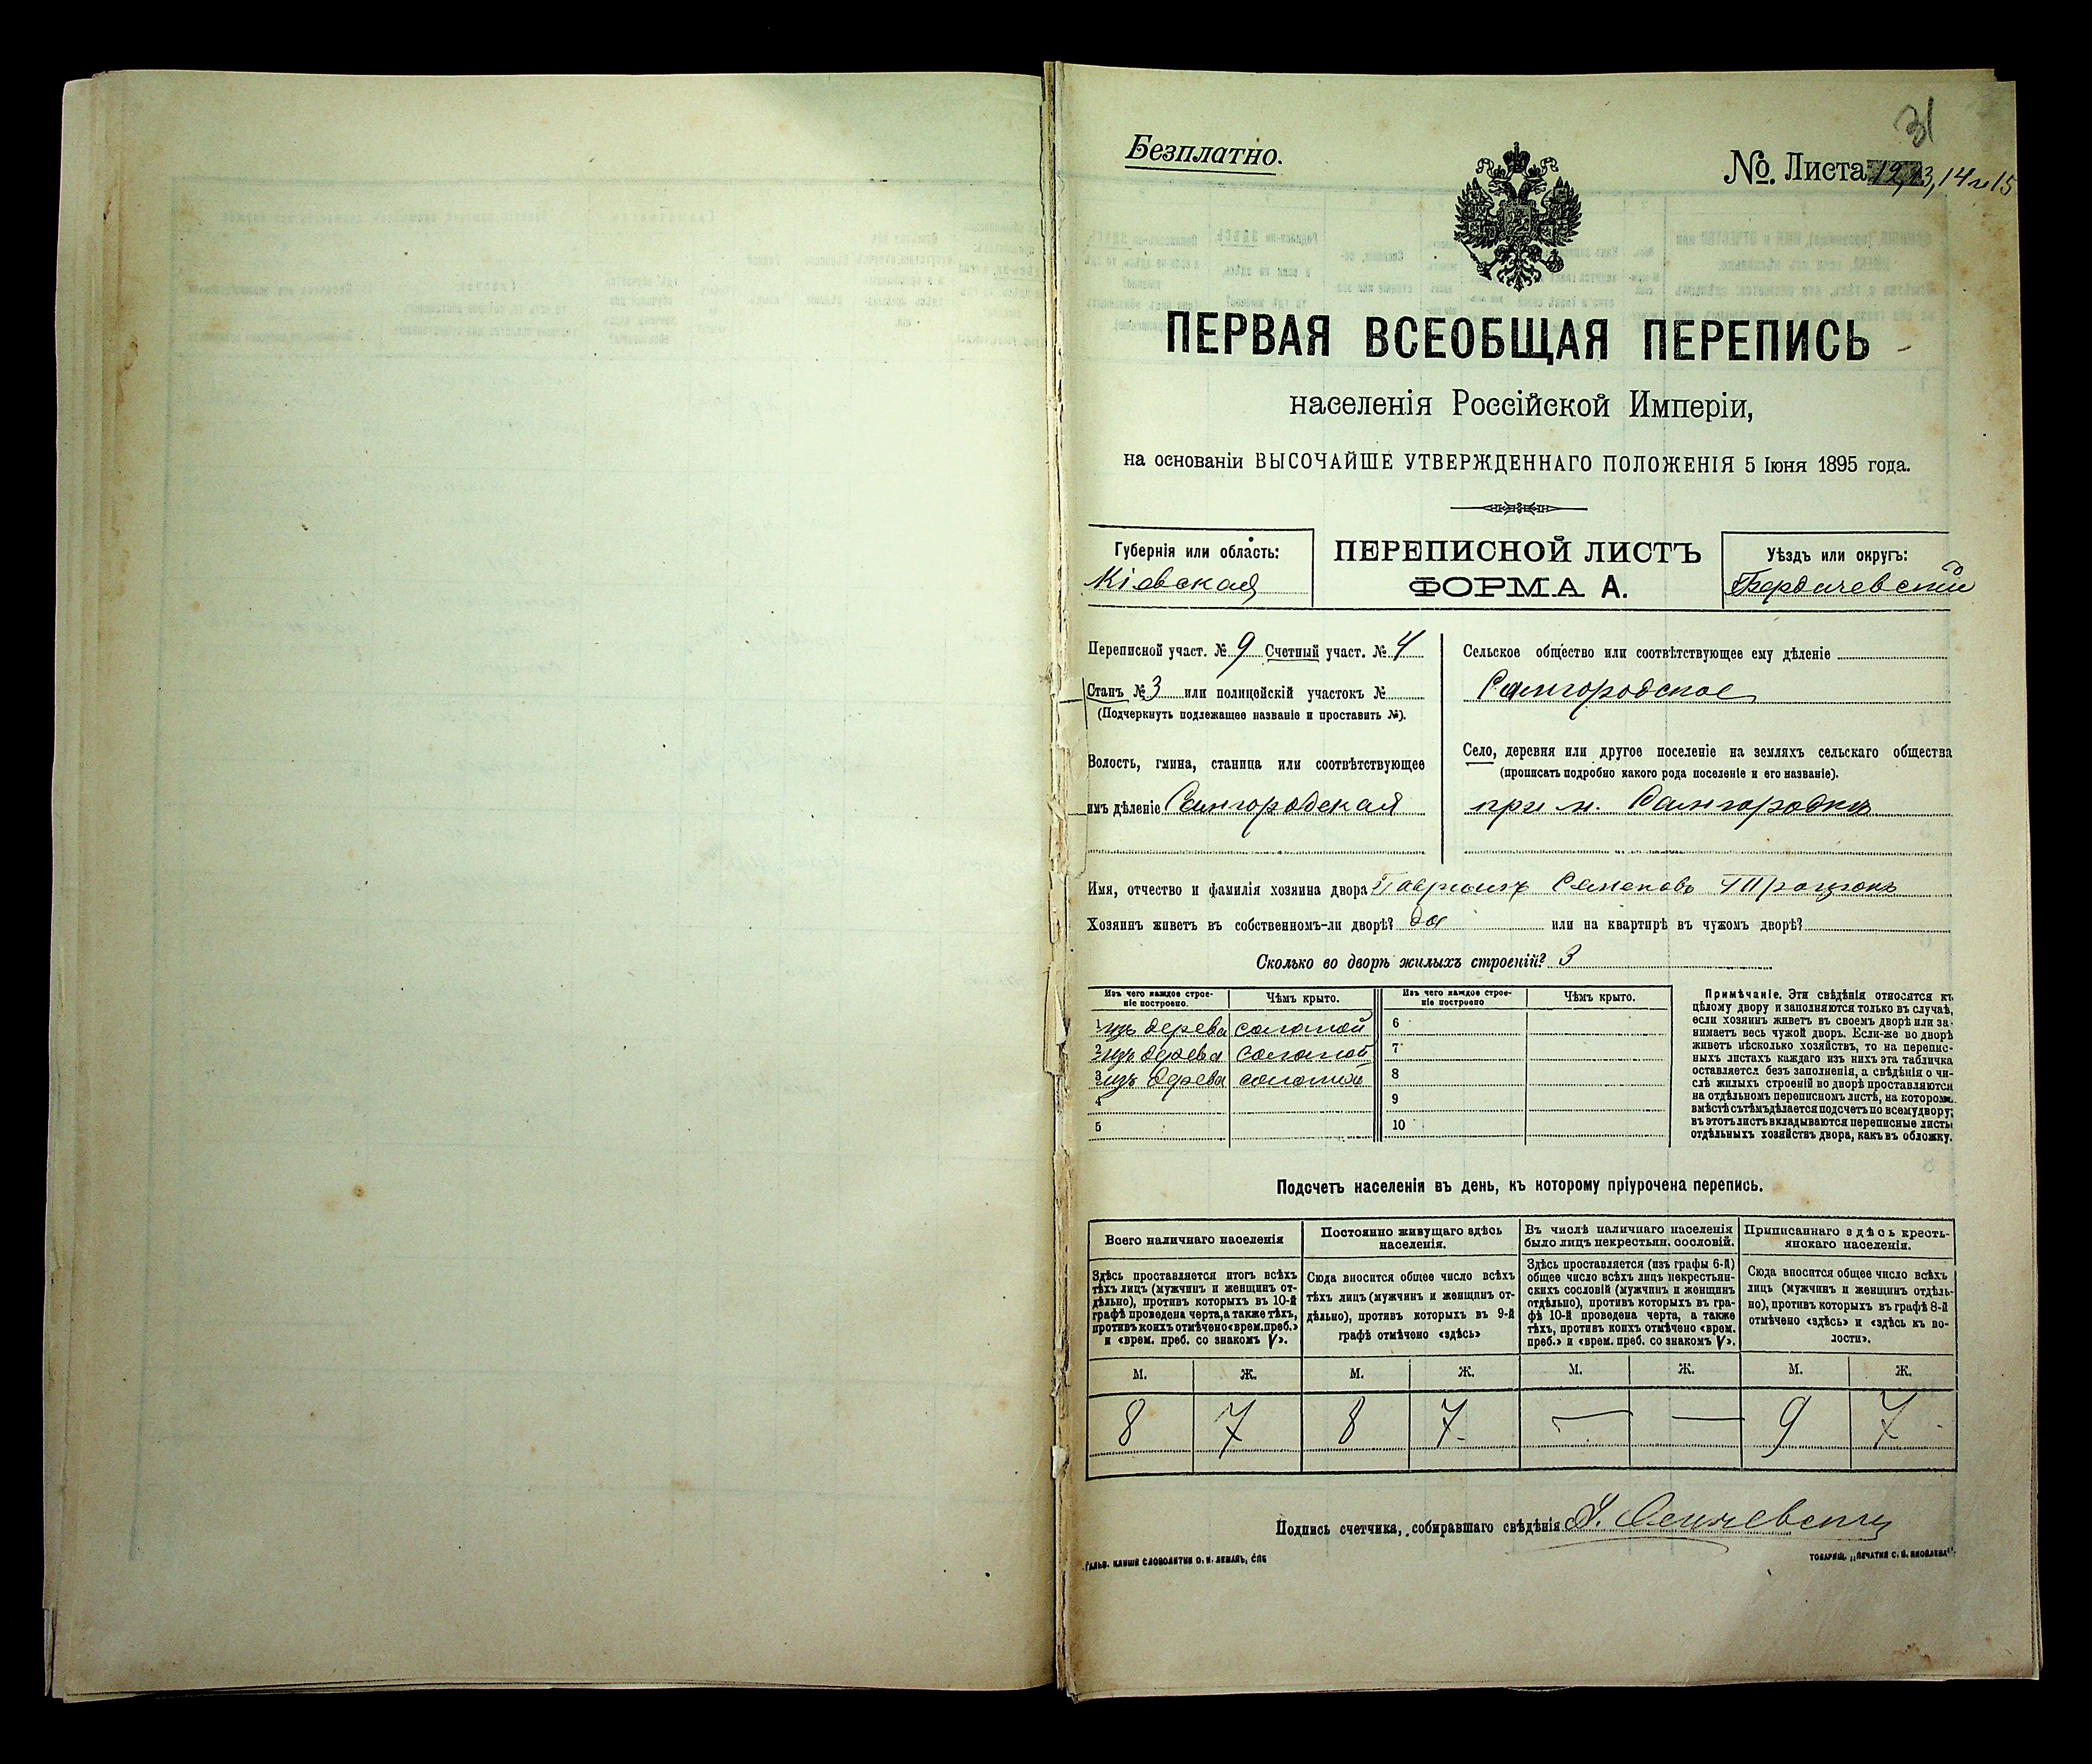 31
Безплатно.
№. Листа 12, 13, 14 и 15
ПЕРВАЯ ВСЕОБЩАЯ ПЕРЕПИСЬ
населенія Россійской Имперіи,
на основаніи ВЫСОЧАЙШЕ УТВЕРЖДЕННАГО ПОЛОЖЕНІЯ 5 Іюня 1895 года.
Губернія или область:
Кіевская
ПЕРЕПИСНОЙ ЛИСТЪ
ФОРМА А.
Уѣздъ или округъ:
Бердичевскій
Переписной участ. № 9 Счетный участ. № 4
Станъ № 3 или полицейскій участокъ №
(Подчеркнуть подлежащее названіе и проставить №).
Волость, гмина, станица или соотвѣтствующее
имъ дѣленіе Самгородская
Сельское общество или соотвѣтствующее ему дѣленіе
Самгородское
Село, деревня или другое поселеніе на земляхъ сельскаго общества
(прописать подробно какого рода поселеніе и его названіе).
при м. Самгородкѣ
Имя, отчество и фамилія хозяина двора Гавріилъ Семеновъ
Хозяинъ живетъ въ собственномъ-ли дворѣ? да или на квартирѣ въ чужомъ дворѣ?
Сколько во дворѣ жилыхъ строеній? 3
Изъ чего каждое строе-
ніе построено.
Чѣмъ крыто.
1 изъ дерева соломой
2 изъ дерева соломой
3 изъ дерева соломой
4
5
Изъ чего каждое строе-
ніе построено
Чѣмъ крыто.
6
7
8
9
10
Примѣчаніе. Эти свѣдѣнія относятся къ
цѣлому двору и заполняются только въ случаѣ,
если хозяинъ живетъ въ своемъ дворѣ или за-
нимаетъ весь чужой дворъ. Если-же во дворѣ
живетъ нѣсколько хозяйствъ, то на перепис-
ныхъ листахъ каждаго изъ нихъ эта табличка
оставляется безъ заполненія, а свѣдѣнія о чи-
слѣ жилыхъ строеній во дворѣ проставляются
на отдѣльномъ переписномъ листѣ, на которомъ
вмѣстѣ съ тѣмъ дѣлается подсчетъ по всему двору;
въ этотъ листъ вкладываются переписные листы
отдѣльныхъ хозяйствъ двора, какъ въ обложку.
Подсчетъ населенія въ день, къ которому пріурочена перепись.
Всего наличнаго населенія
Здѣсь проставляется итогъ всѣхъ
тѣхъ лицъ (мужчинъ и женщинъ от-
дѣльно), противъ которыхъ въ 10-й
графѣ проведена черта, а также тѣхъ,
противъ коихъ отмѣчено «врем. преб.»
и «врем. преб. со знакомъ V».
Постоянно живущаго здѣсь
населенія.
Сюда вносится общее число всѣхъ
тѣхъ лицъ (мужчинъ и женщинъ от-
дѣльно), противъ которыхъ въ 9-й
графѣ отмѣчено «здѣсь»
Въ числѣ наличнаго населенія
было лицъ некрестьян. сословій.
Здѣсь проставляется (изъ графы 6-й)
общее число всѣхъ лицъ некрестьян-
скихъ сословій (мужчинъ и женщинъ
отдѣльно), противъ которыхъ въ гра-
фѣ 10-й проведена черта, а также
тѣхъ, противъ коихъ отмѣчено «врем.
преб.» и «врем. преб. со знакомъ V».
Приписаннаго здѣсь кресть-
янскаго населенія.
Сюда вносится общее число всѣхъ
лицъ (мужчинъ и женщинъ отдѣль-
но), противъ которыхъ въ графѣ 8-й
отмѣчено «здѣсь» и «здѣсь къ во-
лости».
М. Ж. М. Ж. М. Ж. М. Ж.
8 7 8 7 — — 9 7
Подпись счетчика, собиравшаго свѣдѣнія
ГАЛЬВ. КЛИШЕ СЛОВОЛИТНИ О. И. ЛЕМАНЪ, СПБ
ТОВАРИЩ. „ПЕЧАТНЯ С. П. ЯКОВЛЕВА“.